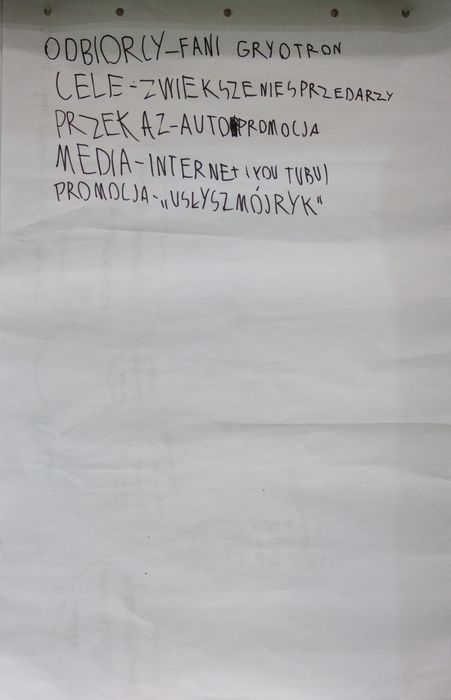 ODBIORCY-FANI GRYOTRON
CELE-ZWIEKSZENIESPRZEDARZY
PRZEKAZ-AUTOPROMOCJA
MEDIA-INTERNEt (YOU TUBU)
PROMOCJA-„USŁYSZMÓJRYK"